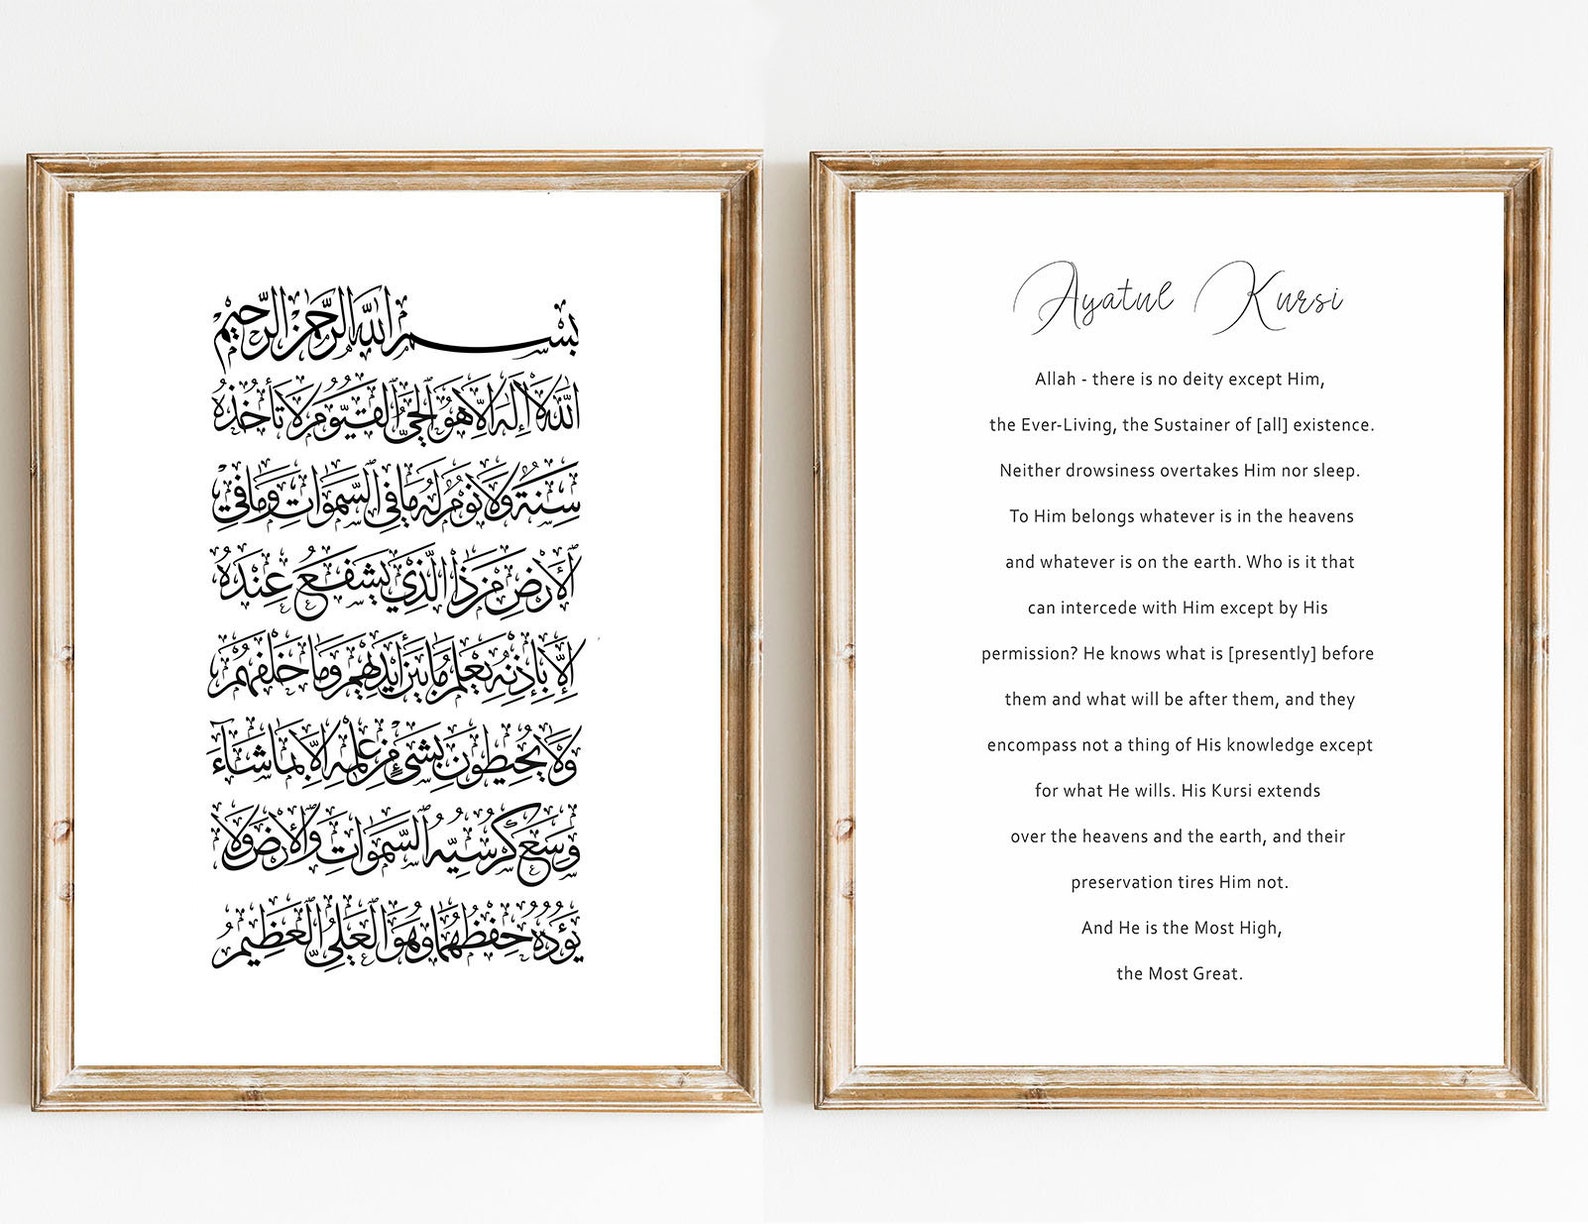 بِسْمِ اللَّهِ الرَّحْمَٰنِ الرَّحِيمِ
اللَّهُ لَا إِلَٰهَ إِلَّا هُوَ الْحَيُّ الْقَيُّومُ لَا تَأْخُذُهُ
سِنَةٌ وَلَا نَوْمٌ لَهُ مَا فِي السَّمَوَاتِ وَمَا فِي
الْأَرْضِ مَنْ ذَا الَّذِي يَشْفَعُ عِنْدَهُ
إِلَّا بِإِذْنِهِ يَعْلَمُ مَا بَيْنَ أَيْدِيهِمْ وَمَا خَلْفَهُمْ
وَلَا يُحِيطُونَ بِشَيْءٍ مِنْ عِلْمِهِ إِلَّا بِمَا شَاءَ
وَسِعَ كُرْسِيُّهُ السَّمَوَاتِ وَالْأَرْضَ وَلَا
يَئُودُهُ حِفْظُهُمَا وَهُوَ الْعَلِيُّ الْعَظِيمُ
Ayatul Kursi
Allah - there is no deity except Him,
the Ever-Living, the Sustainer of [all] existence.
Neither drowsiness overtakes Him nor sleep.
To Him belongs whatever is in the heavens
and whatever is on the earth. Who is it that
can intercede with Him except by His
permission? He knows what is [presently] before
them and what will be after them, and they
encompass not a thing of His knowledge except
for what He wills. His Kursi extends
over the heavens and the earth, and their
preservation tires Him not.
And He is the Most High,
the Most Great.